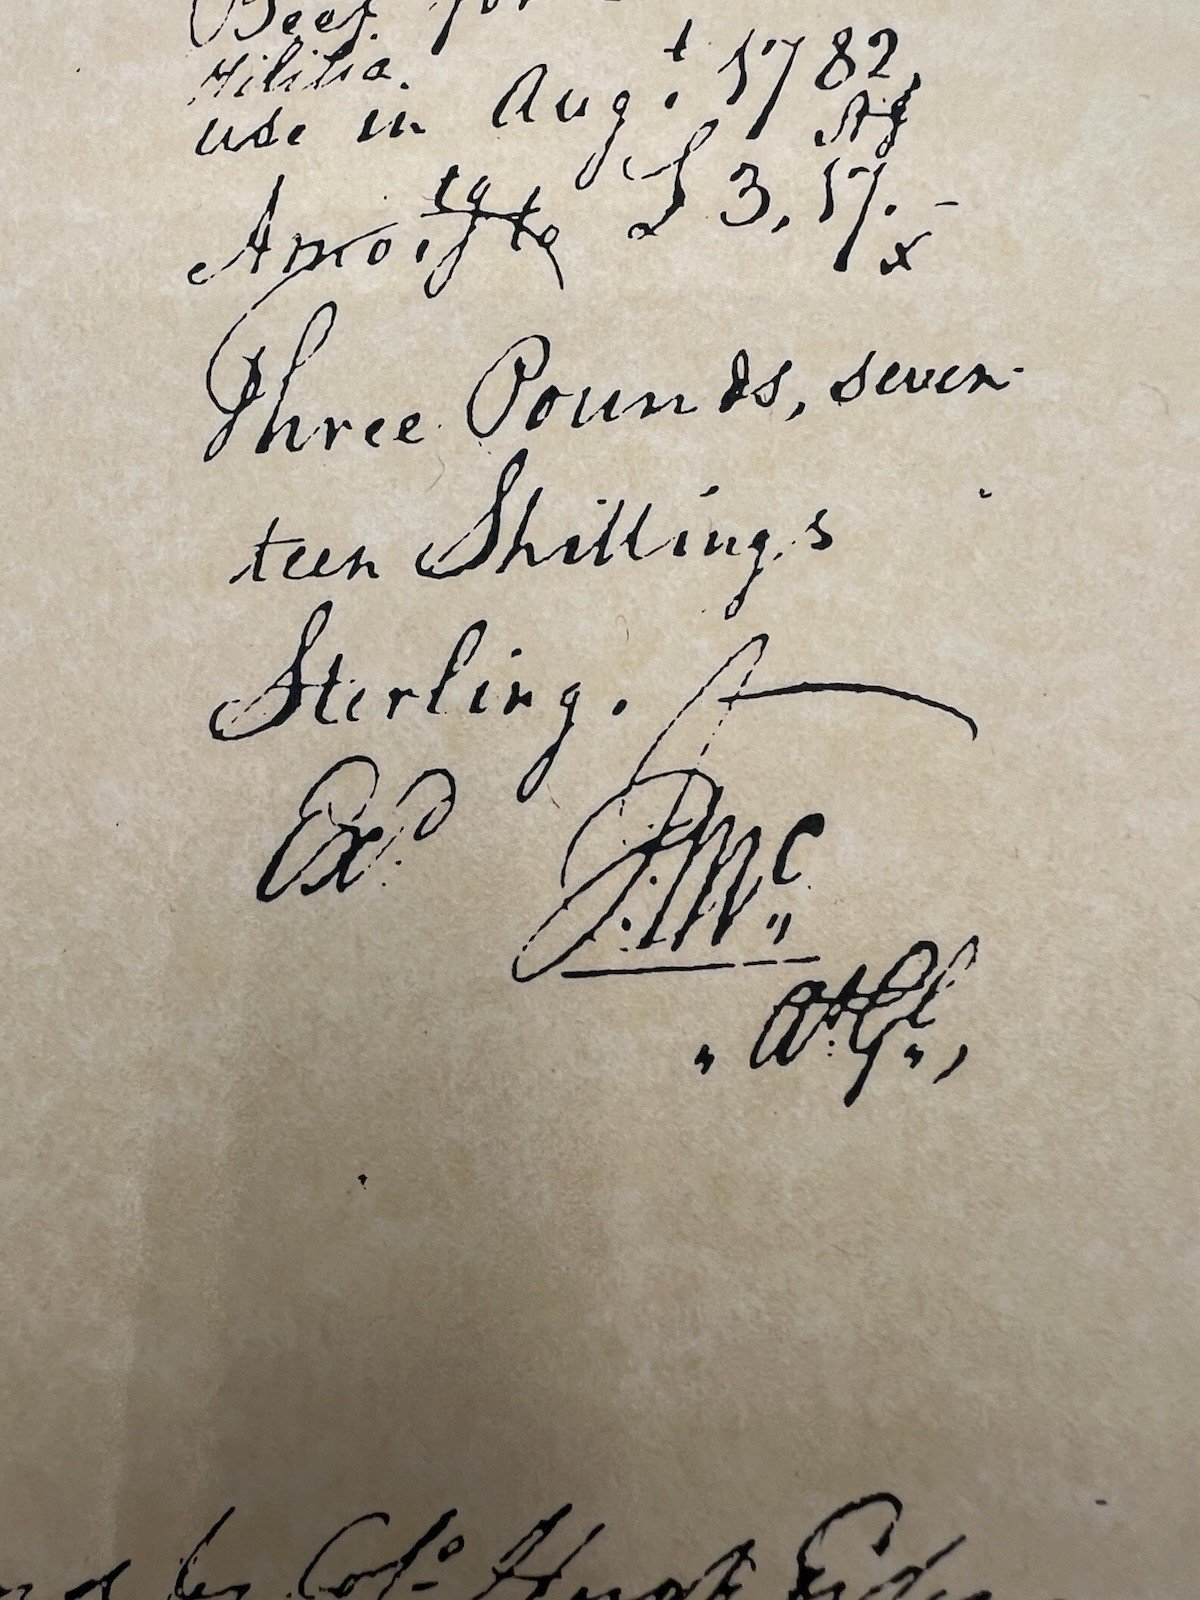 Beef for
Militia.
use in Aug.t 1782,
Stg
Amo.tg to £3,17.-
Three Pounds, seven-
teen Shillings
Sterling.
Ex.d J. Mc.
A. Gl.,
by Col.o Hugh